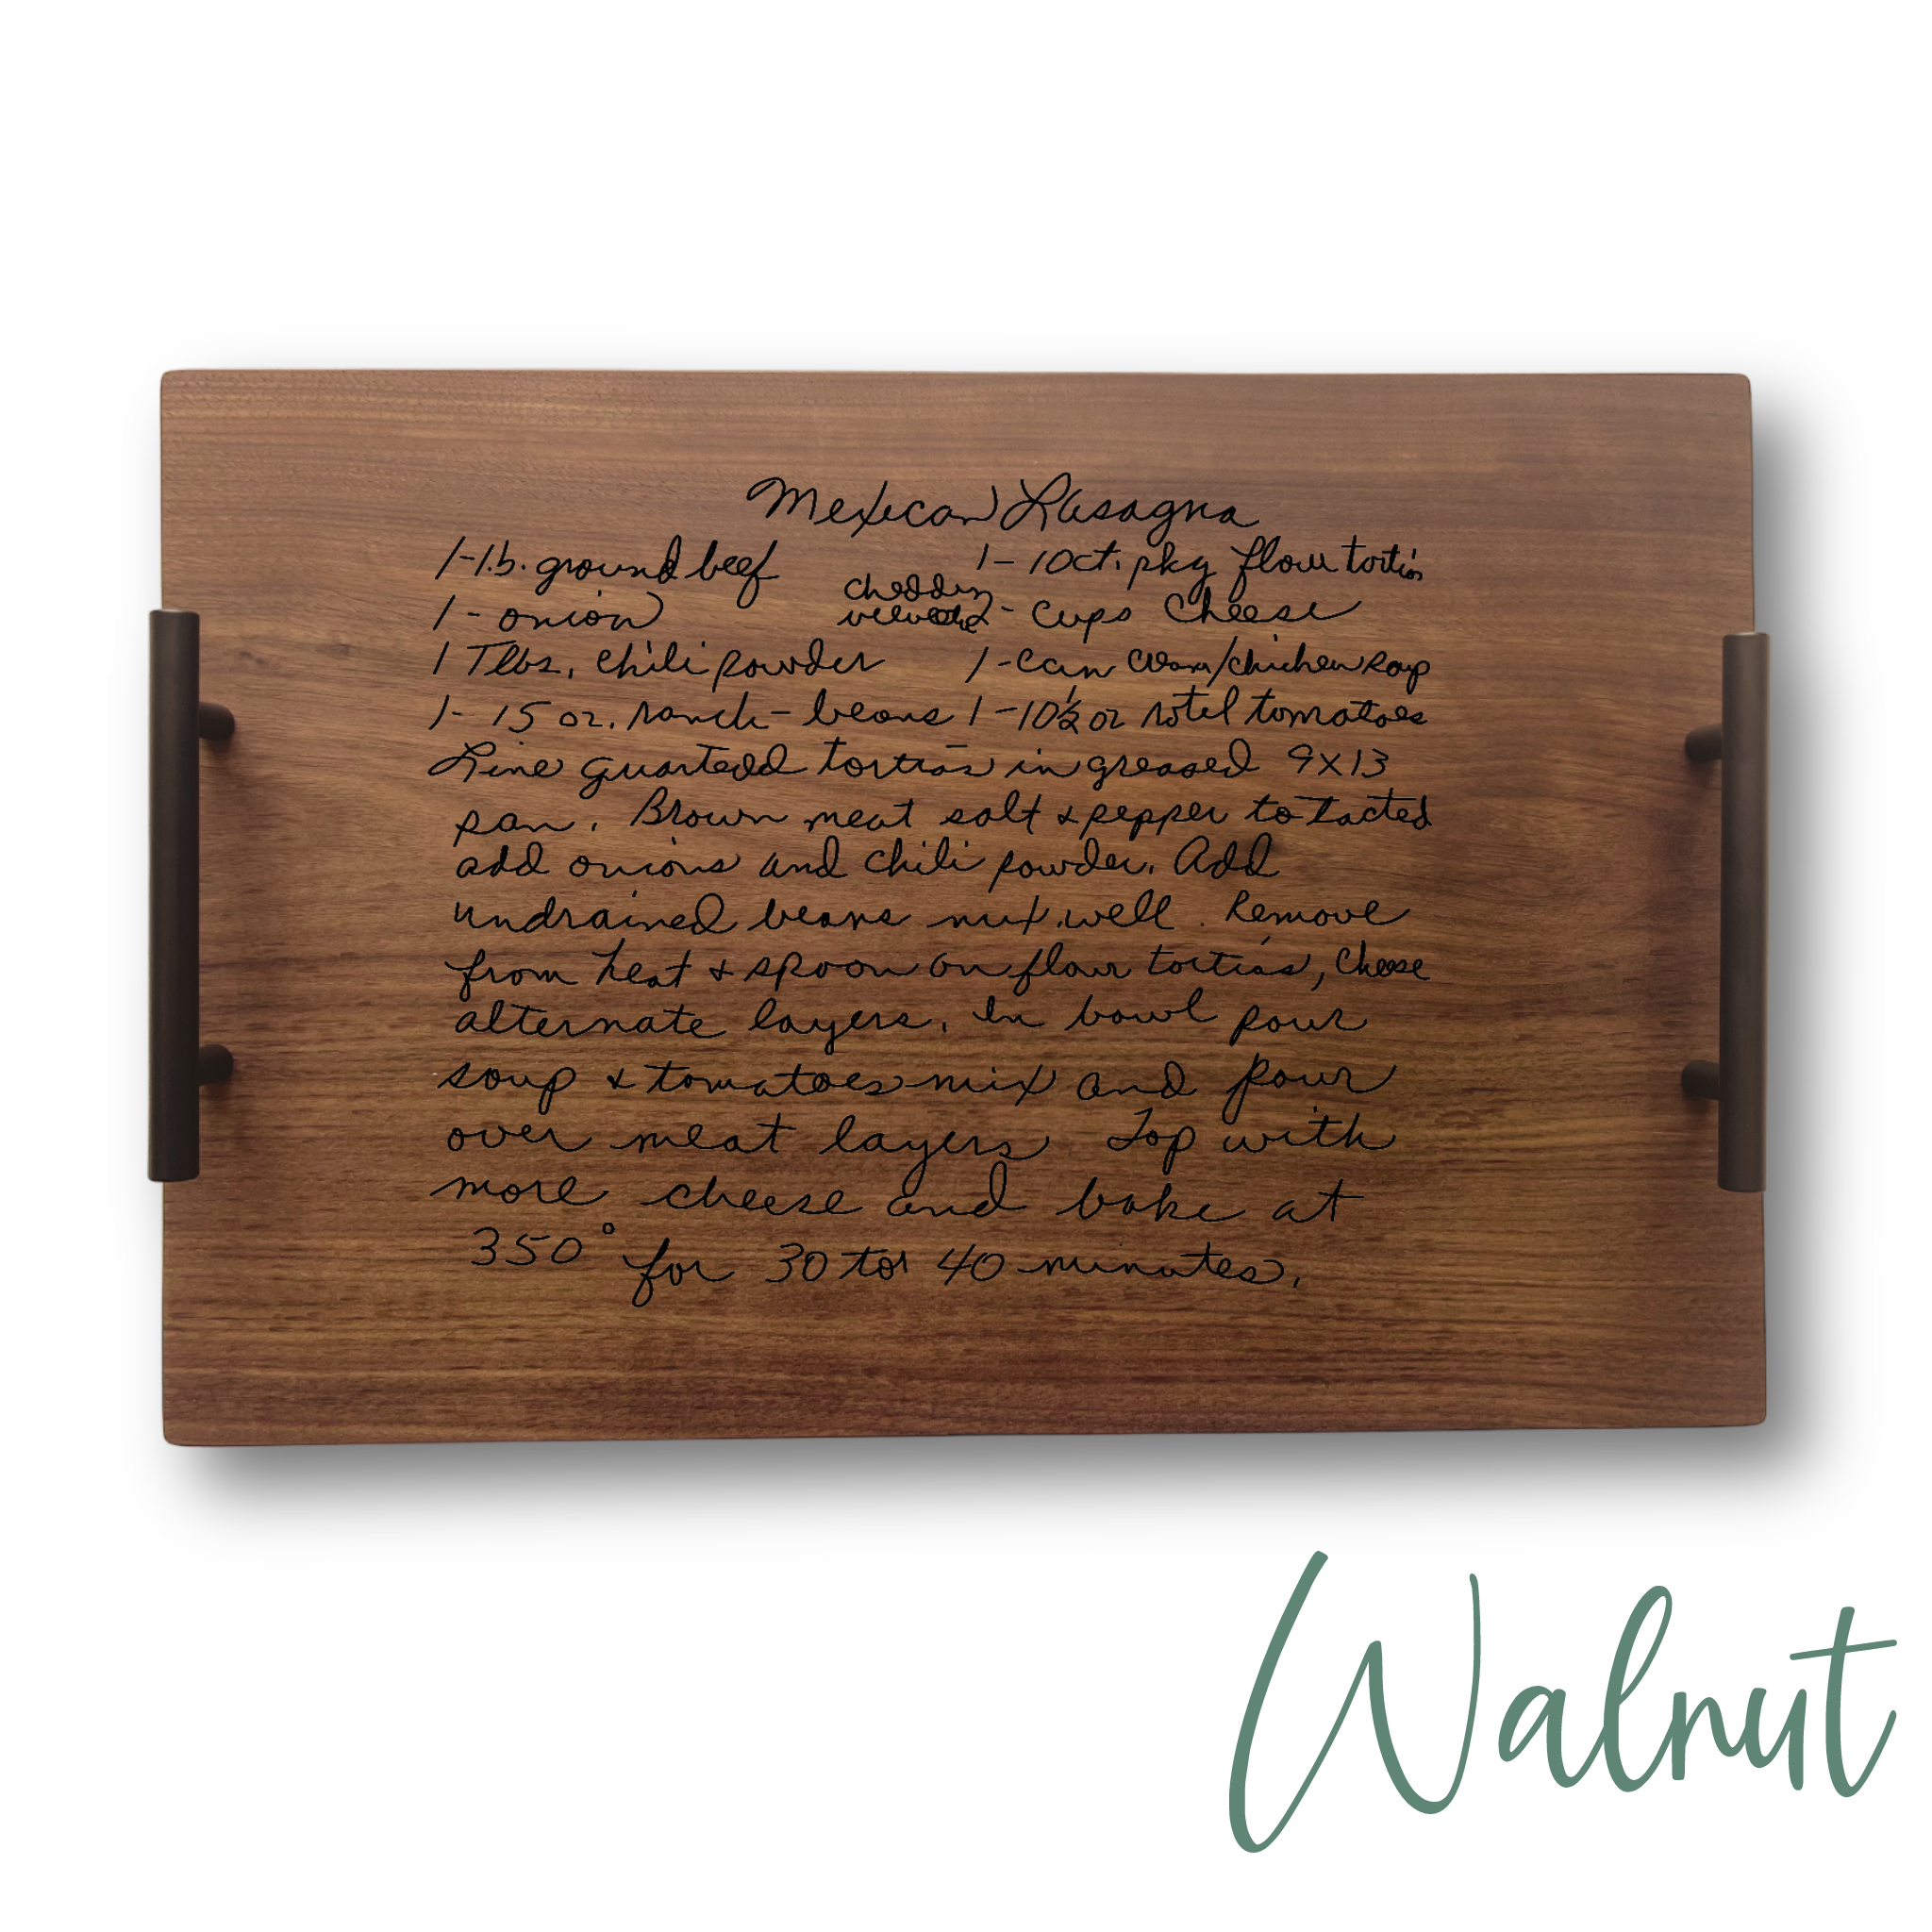 Mexican Lasagna
1-lb. ground beef 1-10ct. pkg flour tortias
1- onion cheddar velveeta 2- cups Cheese
1 Tlbs. chili powder 1-can cream/chicken soup
1- 15 oz. ranch-beans 1-10½ oz rotel tomatoes
Line quartedd tortias in greased 9x13
pan. Brown meat salt & pepper to tacted
add onions and chili powder. Add
undrained beans mix well. Remove
from heat & spoon on flour tortias, cheese
alternate layers. In bowl pour
soup & tomatoes mix and pour
over meat layers Top with
more cheese and bake at
350° for 30 to 40 minutes.
Walnut